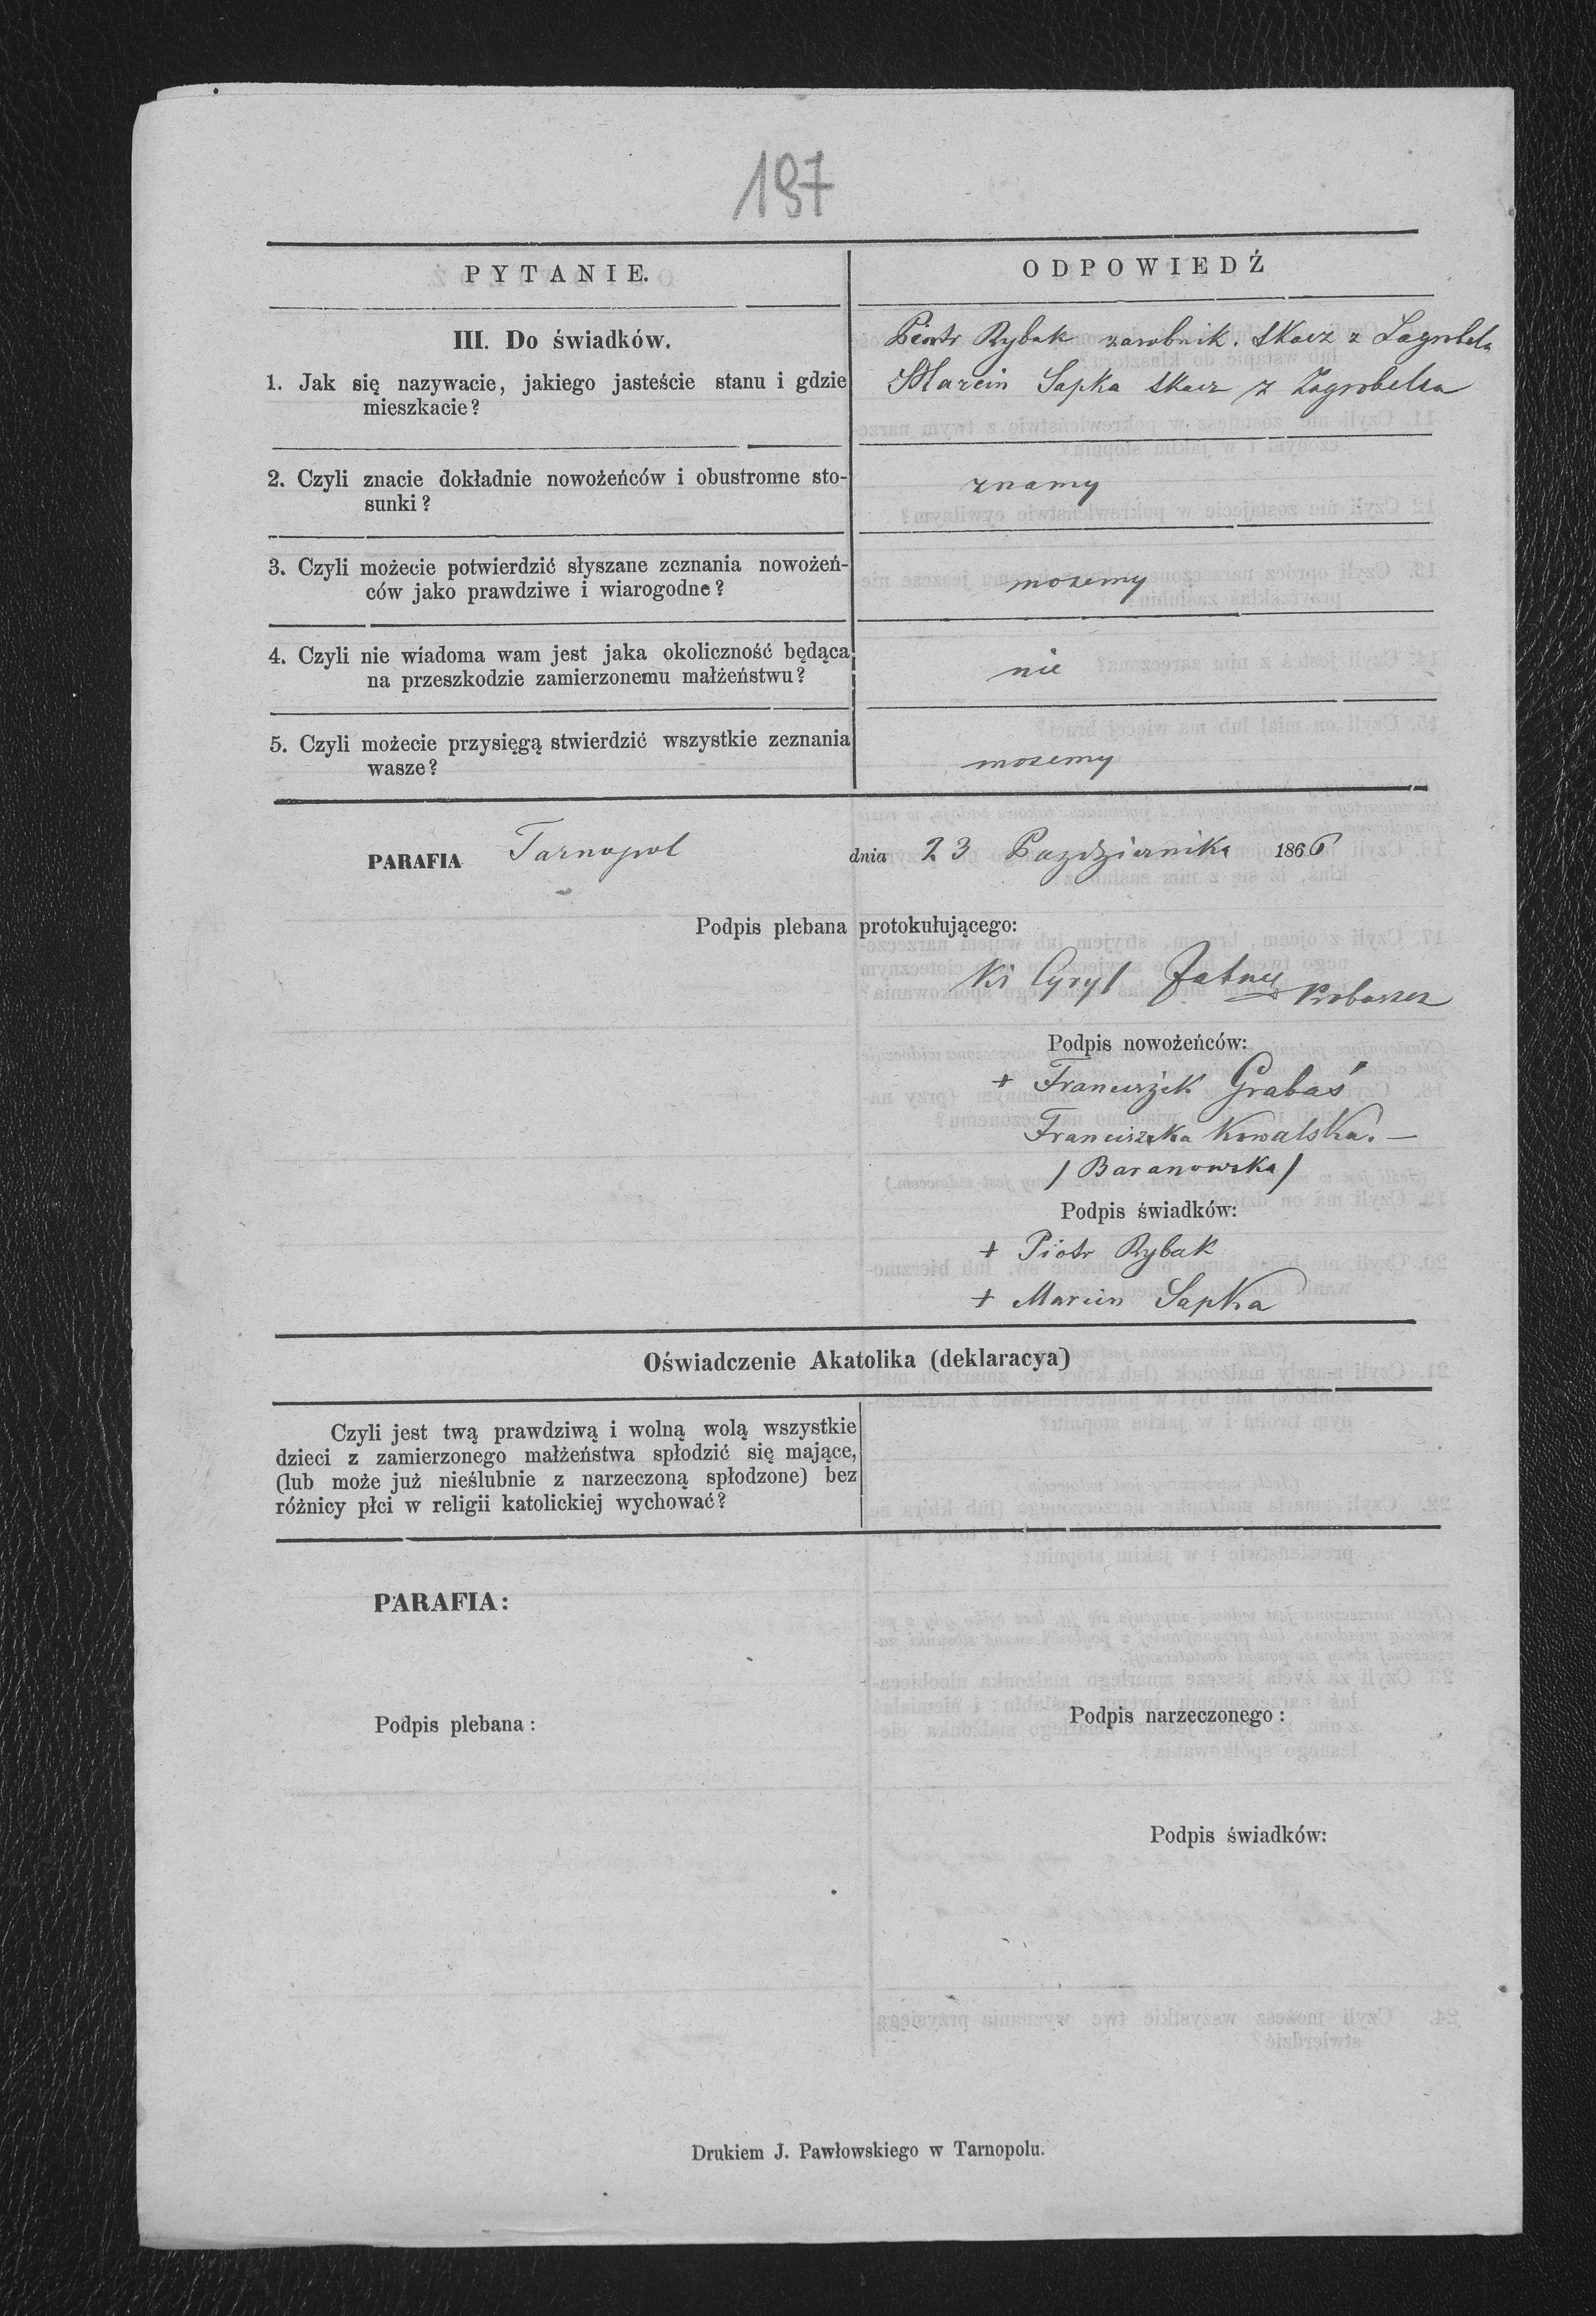 197
PYTANIE.
ODPOWIEDŹ
III. Do świadków.
1. Jak się nazywacie, jakiego jasteście stanu i gdzie
mieszkacie?
Piotr Rybak zarobnik. tkacz z Zagrobela
Marcin Sapka tkacz z Zagrobelza
2. Czyli znacie dokładnie nowożeńców i obustronne sto-
sunki?
znamy
3. Czyli możecie potwierdzić słyszane zeznania nowożeń-
ców jako prawdziwe i wiarogodne?
mozemy
4. Czyli nie wiadoma wam jest jaka okoliczność będąca
na przeszkodzie zamierzonemu małżeństwu?
nie
5. Czyli możecie przysięgą stwierdzić wszystkie zeznania
wasze?
mozemy
PARAFIA Tarnopol dnia 23 Pazdziernika 1866
Podpis plebana protokułującego:
Cyryl Proboszcz
Podpis nowożeńców:
+ Franciszek Grabaś
Franciszka Kowalska. —
/ Baranowska /
Podpis świadków:
+ Piotr Rybak
+ Marcin Sapka
Oświadczenie Akatolika (deklaracya)
Czyli jest twą prawdziwą i wolną wolą wszystkie
dzieci z zamierzonego małżeństwa spłodzić się mające,
(lub może już nieślubnie z narzeczoną spłodzone) bez
różnicy płci w religii katolickiej wychować?
PARAFIA:
Podpis plebana:
Podpis narzeczonego:
Podpis świadków:
Drukiem J. Pawłowskiego w Tarnopolu.